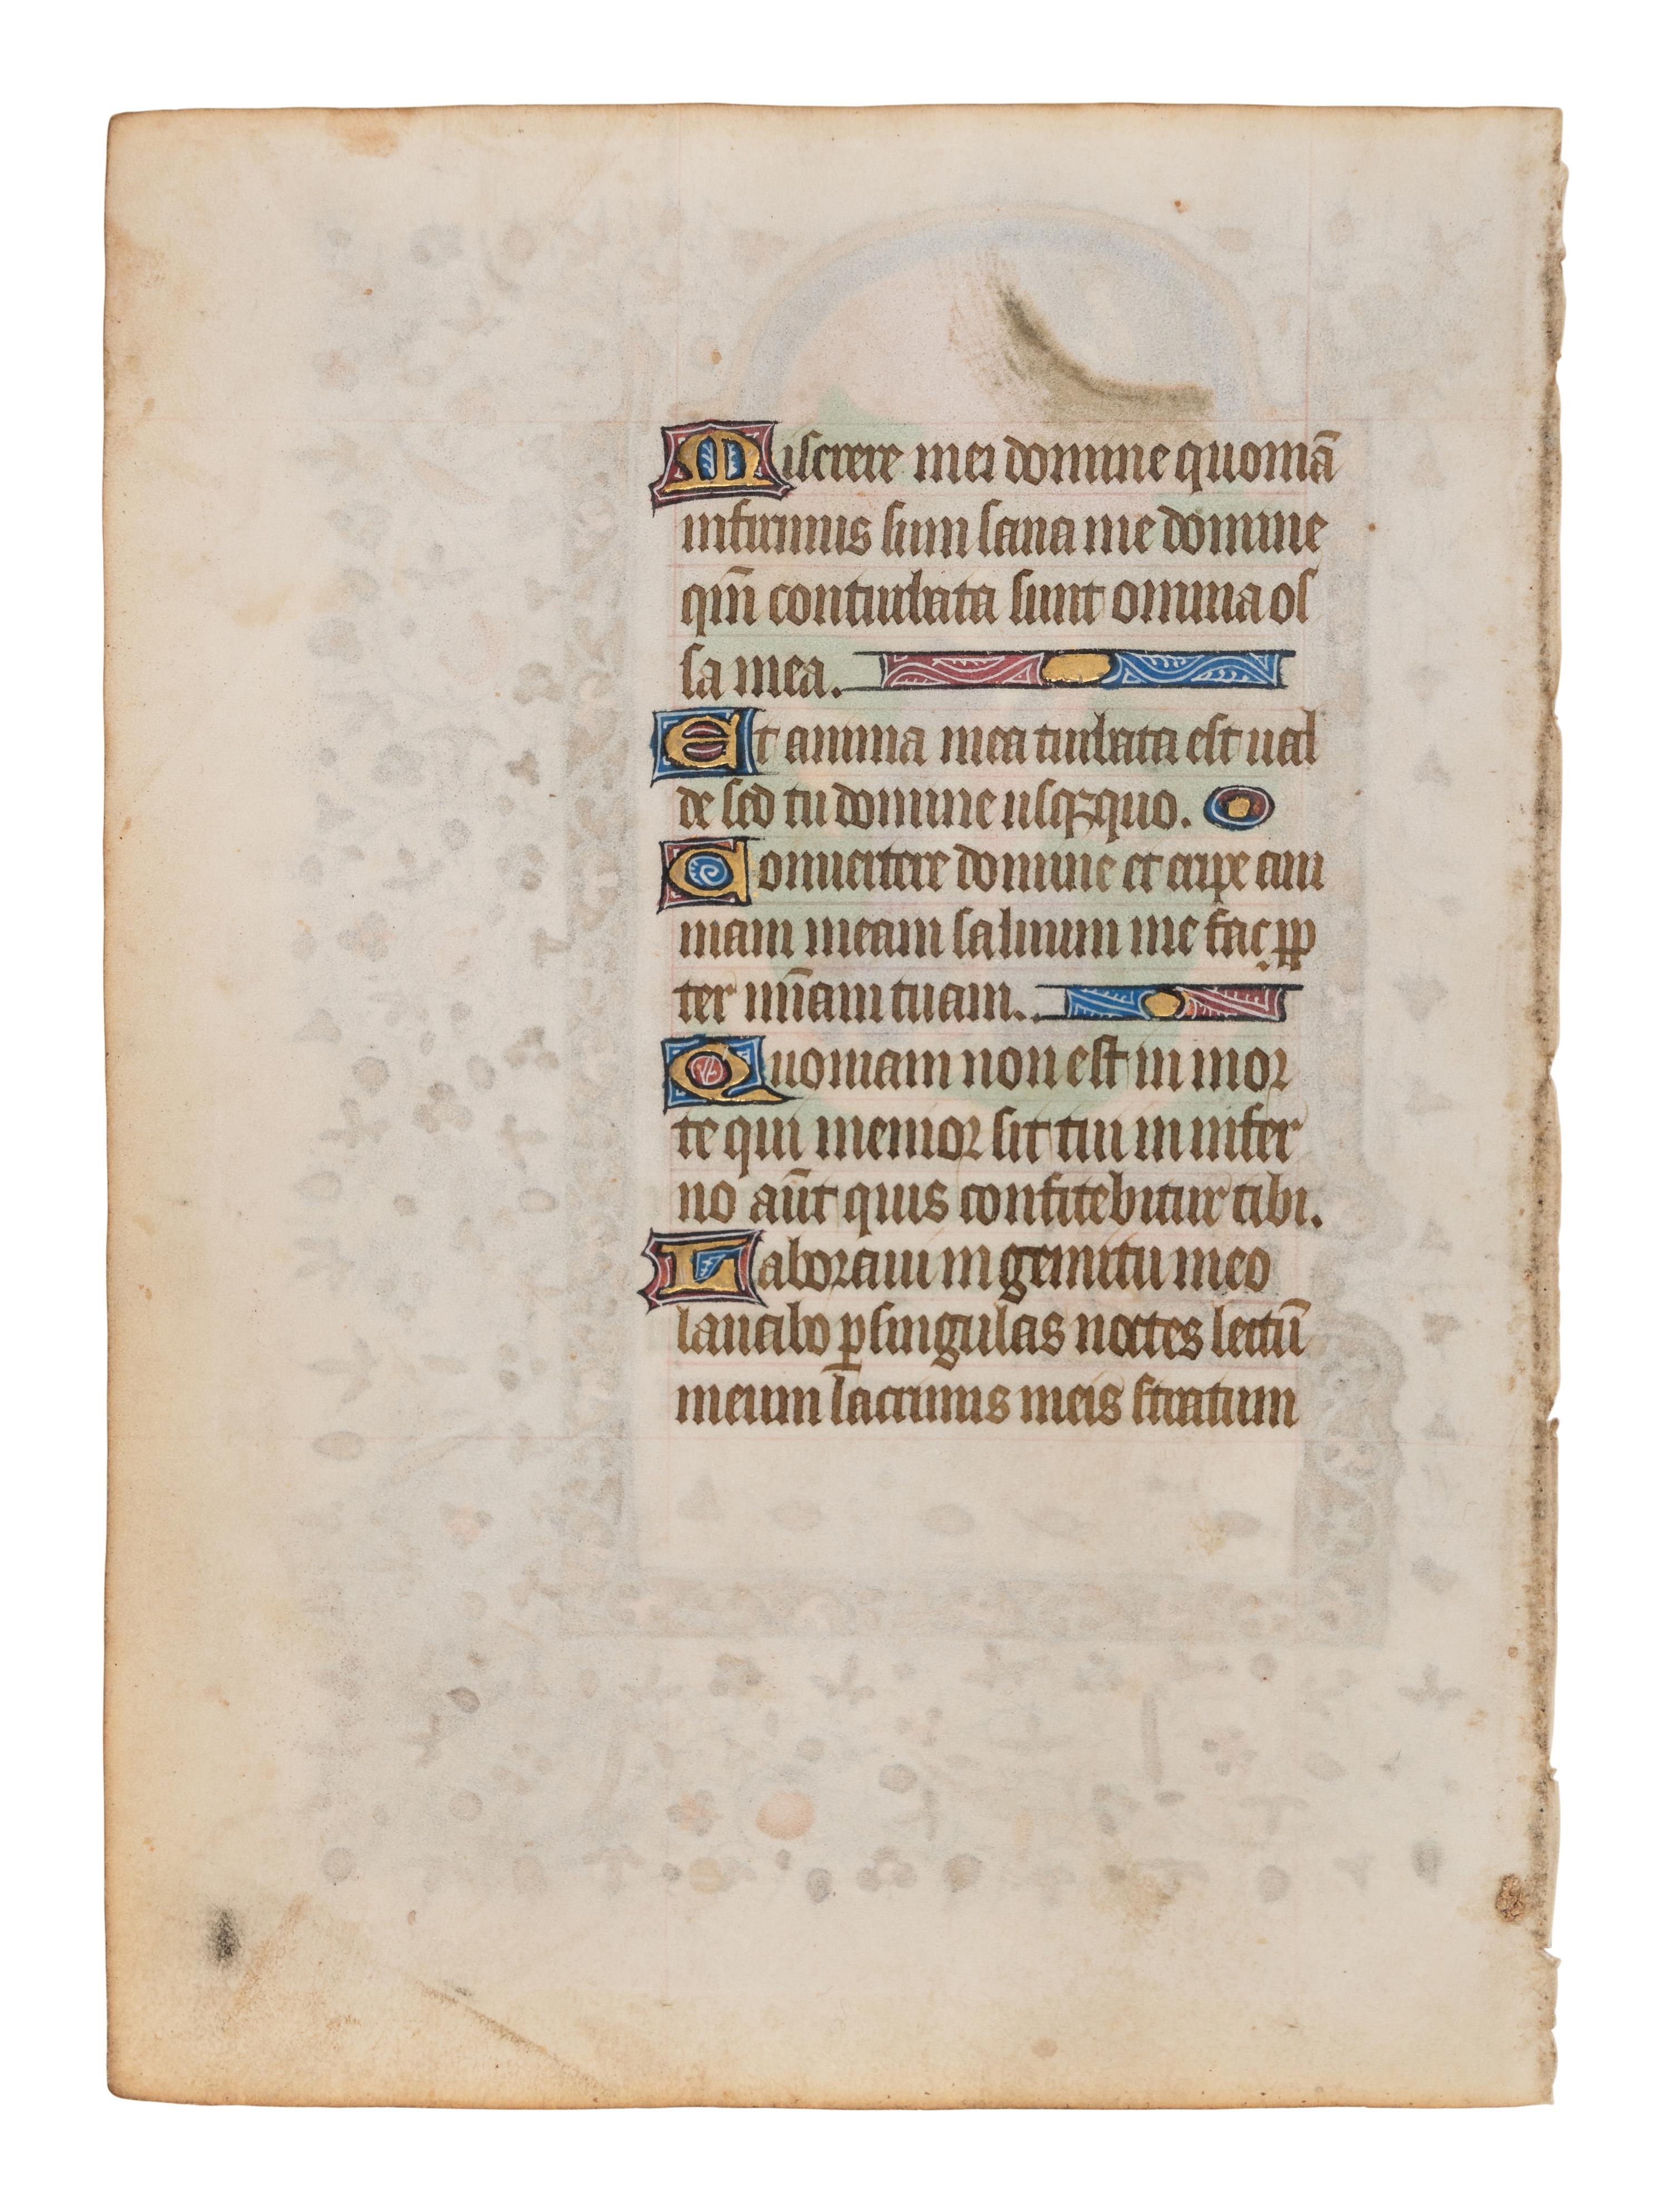 Miserere mei domine quoniā
infirmus sum sana me domine
qm̄ conturbata sunt omnia os
sa mea.
Et anima mea turbata est ual
de sed tu domine usqꝫquo.
Conuertere domine et eripe ani
mam meam saluum me fac ꝓp
ter mīam tuam.
Quoniam non est in mor
te qui memor sit tui in infer
no aūt quis confitebitur tibi.
Laboraui in gemitu meo
lauabo ꝑ singulas noctes lectū
meum lacrimis meis stratum